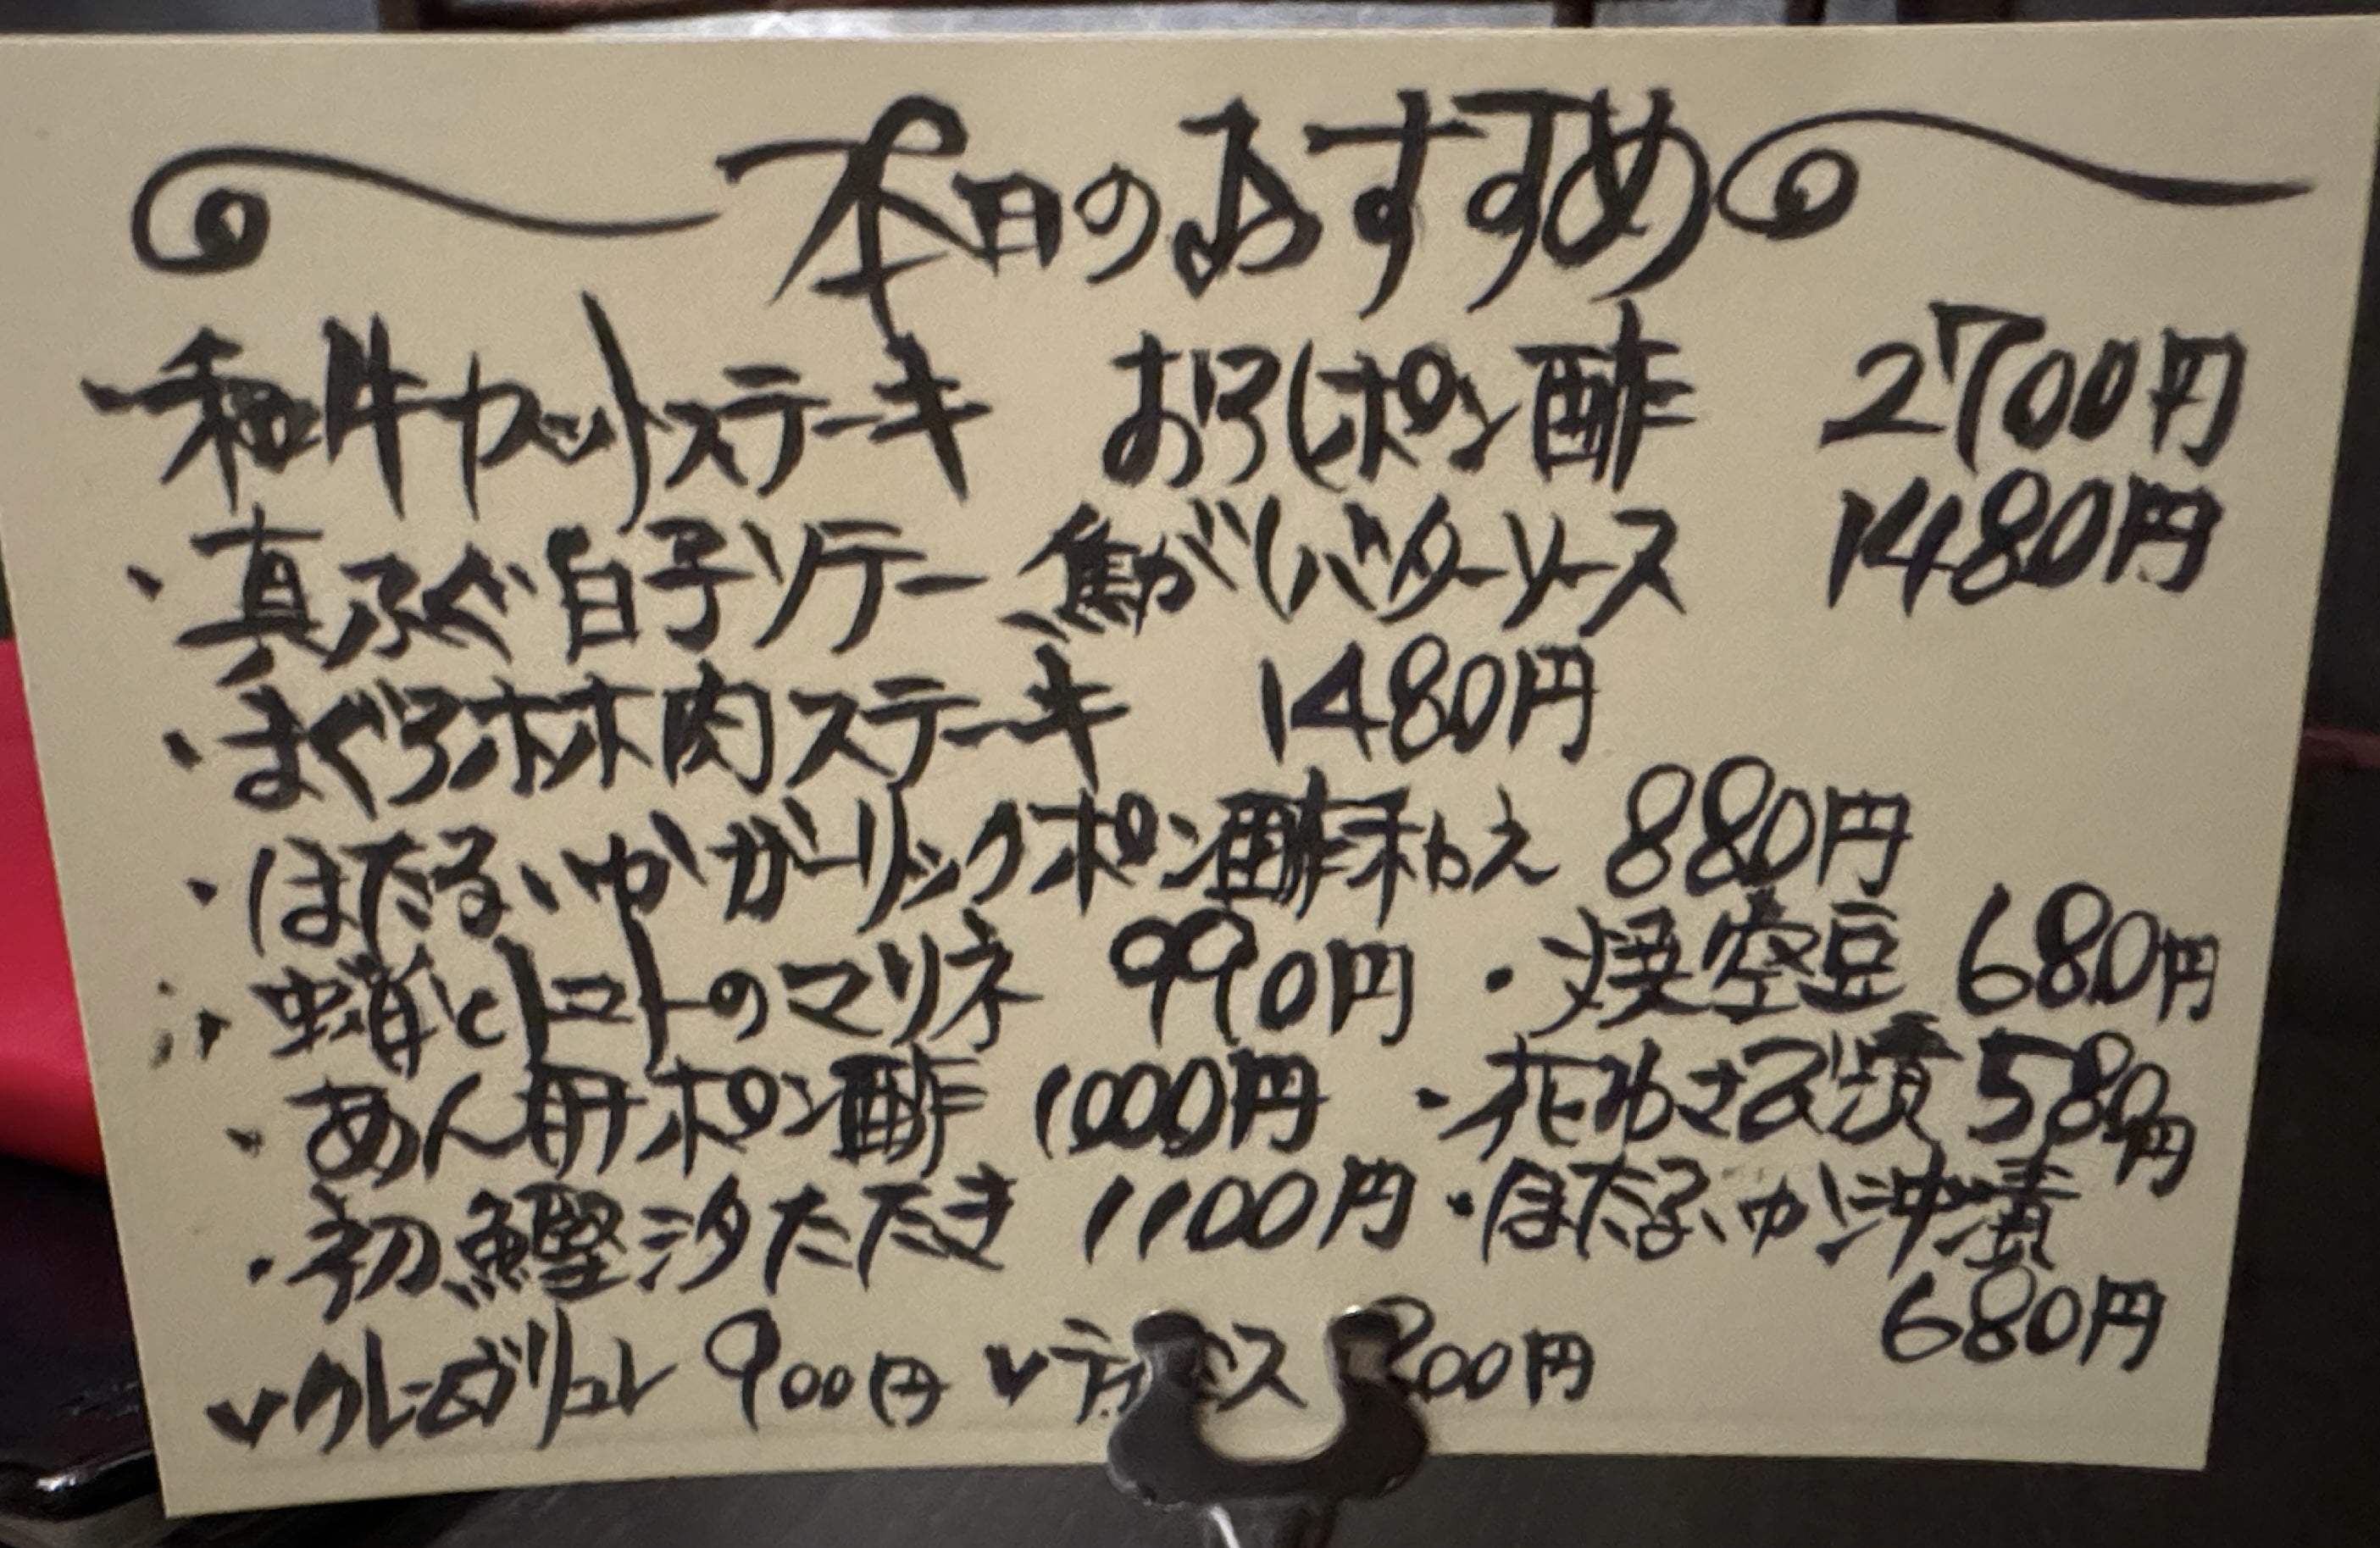 本日のおすすめ
和牛カットステーキ おろしポン酢 2700円
・真ふぐ白子ソテー 焦がしバターソース 1480円
・まぐろホホ肉ステーキ 1480円
・ほたるいかガーリックポン酢和え 880円
・蛸とトマトのマリネ 990円 ・焼空豆 680円
・あん肝ポン酢 1000円 ・花わさび漬 580円
・初鰹汐たたき 1100円 ・ほたるいか沖漬
680円
✓クレームブリュレ 900円 ✓